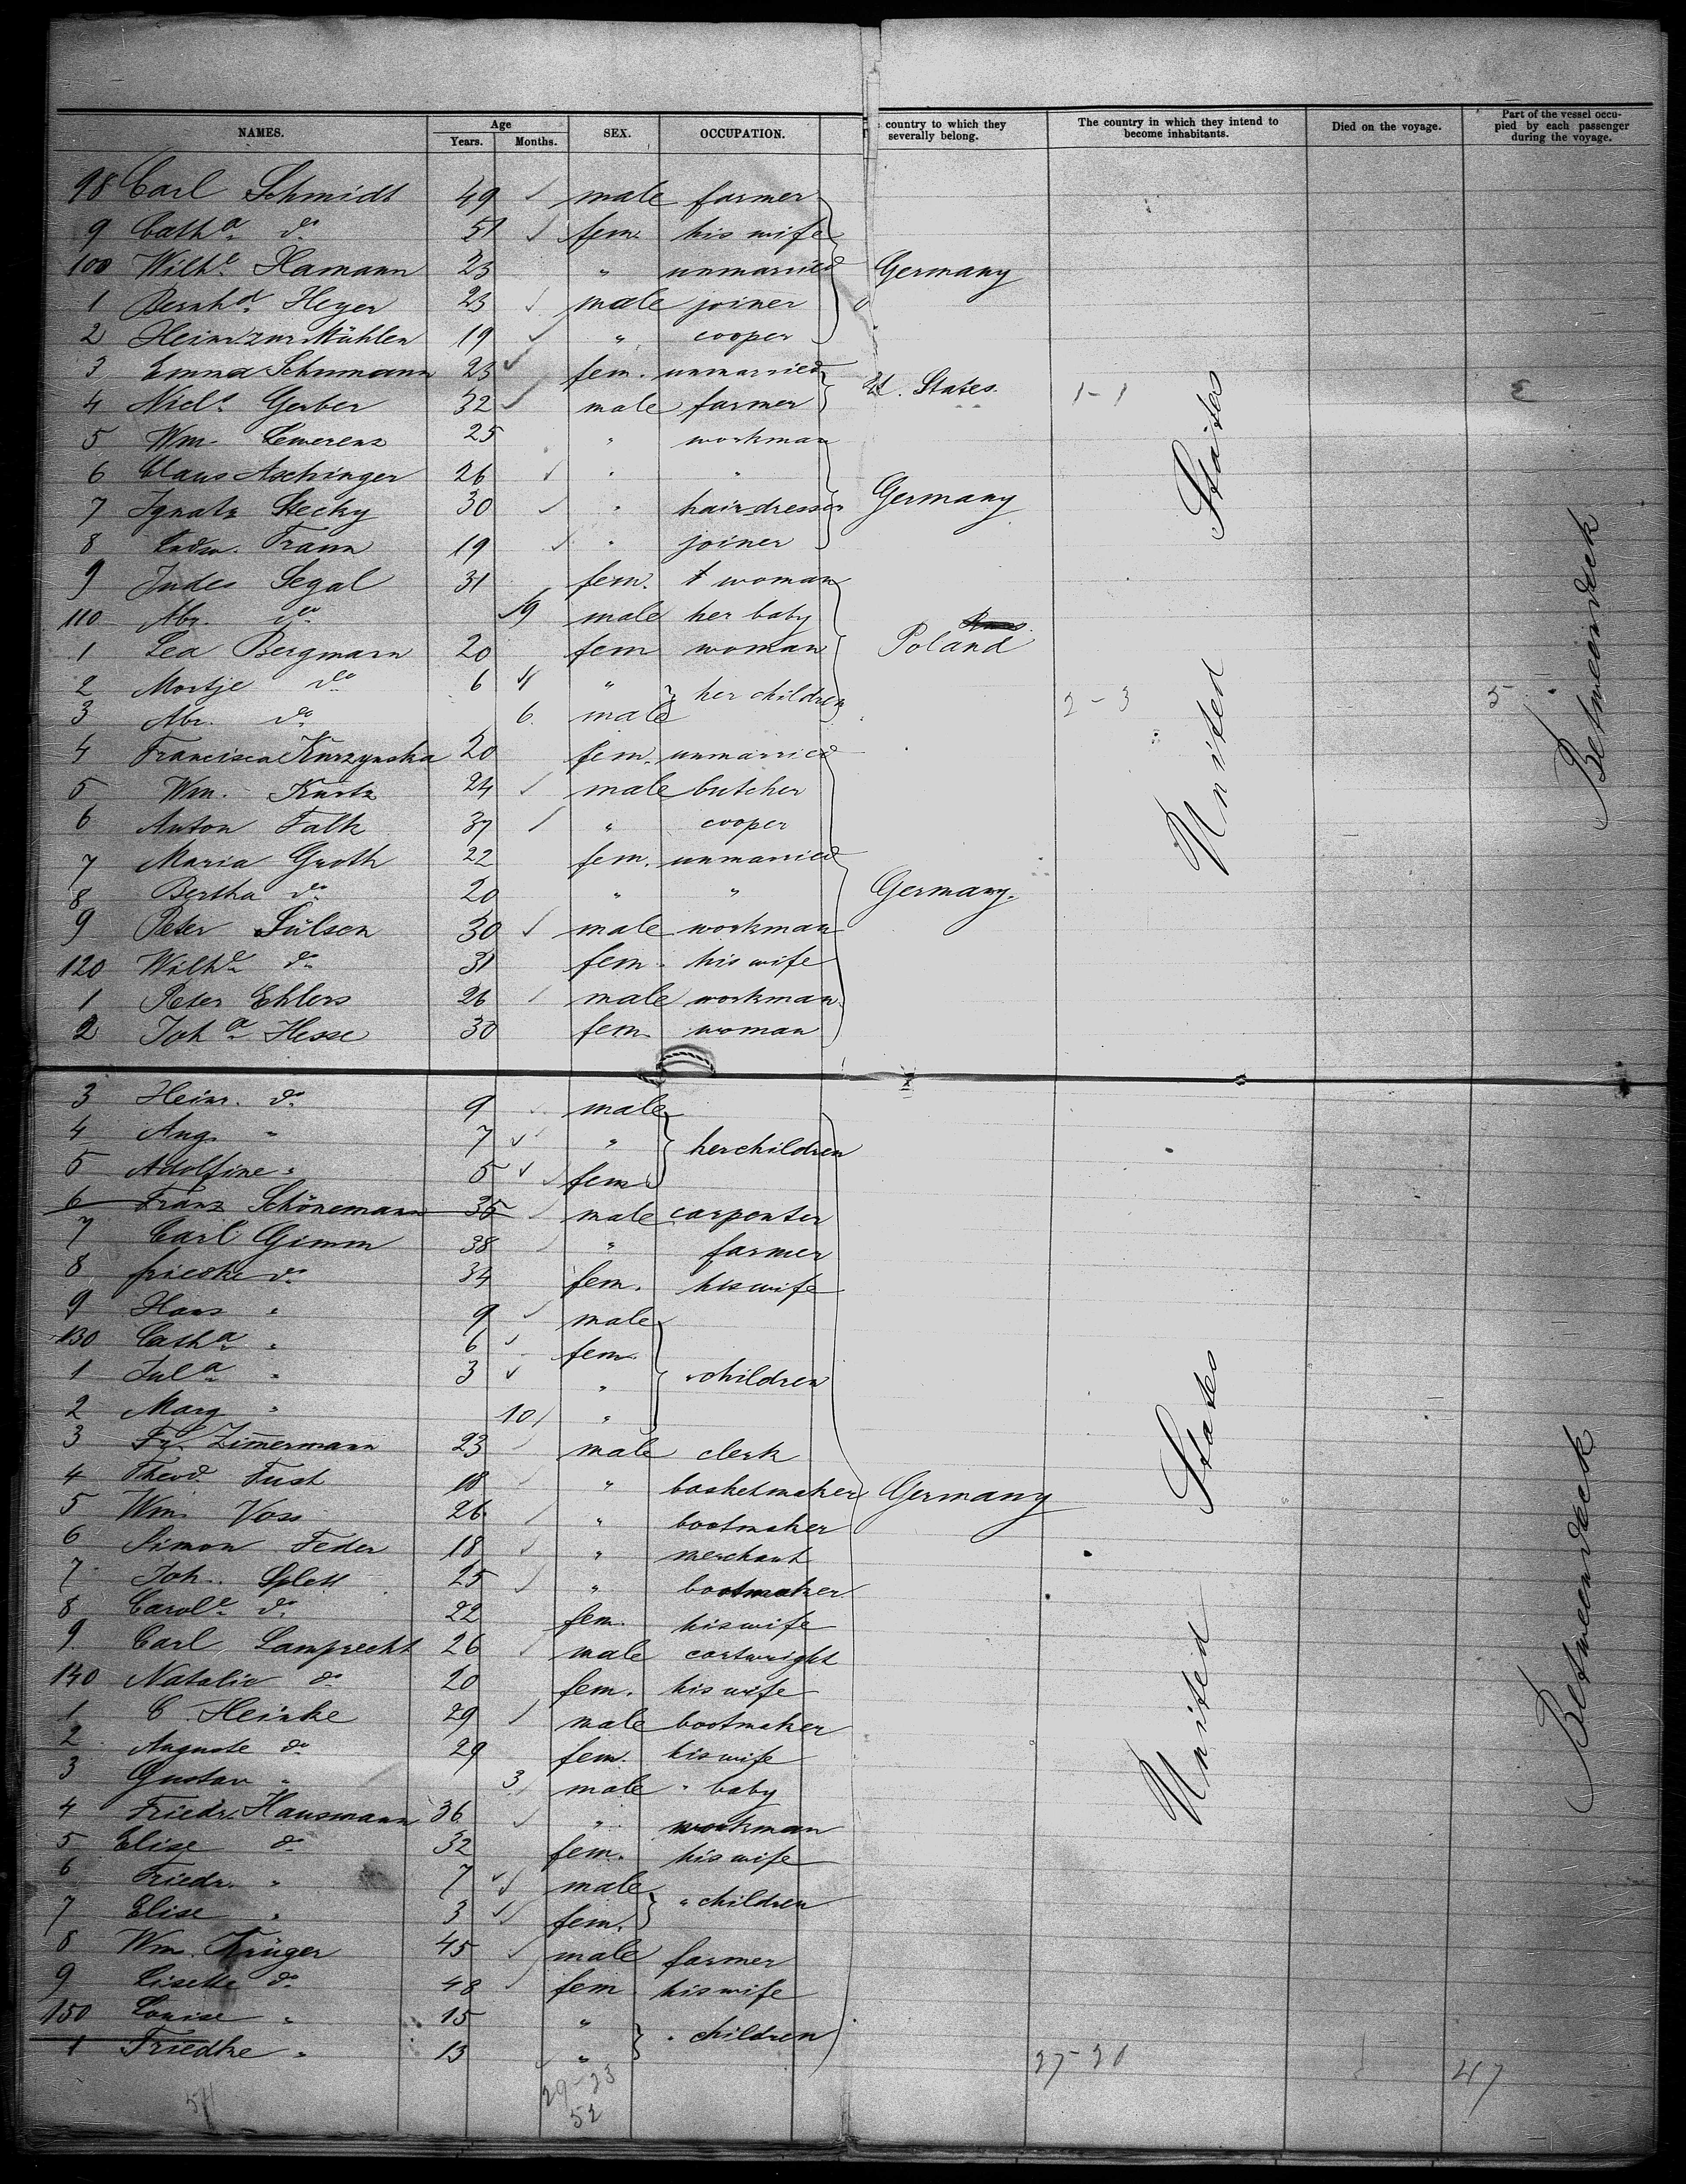 NAMES. Age Years. Months. SEX. OCCUPATION. country to which they severally belong. The country in which they intend to become inhabitants. Died on the voyage. Part of the vessel occupied by each passenger during the voyage.
98 Carl Schmidt 49 male farmer
9 Cath.a do 51 fem. his wife
100 Wilh.e Hamann 23 " unmarried Germany
1 Bernh.d Heyer 23 male joiner
2 Heinr. zur Mühlen 19 " cooper
3 Emma Schumann 23 fem. unmarried
4 Nicls Gerber 32 male farmer U. States. 1-1
5 Wm. Lewerenz 25 " workman
6 Claus Aschinger 26 " "
7 Ignatz Stecky 30 " hairdresser Germany
8 Ludw. Traun 19 " joiner
9 Judes Segal 31 fem. woman
110 Abr. do 9 male her baby
1 Lea Bergmann 20 fem woman Poland
2 Mortje do 6 " her children
3 Abr. do 6. male 2-3 5
4 Francisca Kurzynska 20 fem. unmarried
5 Wm. Kurtz 24 male butcher
6 Anton Falk 37 " cooper
7 Maria Groth 22 fem. unmarried
8 Bertha do 20 " " Germany.
9 Peter Sülsen 30 male workman
120 Wilh.e do 31 fem. his wife
1 Peter Ehlers 26 male workman
2 Joh.a Hesse 30 fem. woman
United States
Betweendeck
3 Heinr. do 9 male
4 Aug. " 7 " her children
5 Adolfine " 5 fem.
6 Franz Schönemann 35 male carpenter
7 Carl Gimm 38 " farmer
8 friedke do 34 fem. his wife
9 Hans " 9 male
130 Cath.a " 6 fem.
1 Jul.a " 3 " " children
2 Marg " 10 "
3 Fr. Zimmermann 23 male clerk
4 Theod. Fust 18 " basketmaker Germany
5 Wm. Voss 26 " bootmaker
6 Simon Feder 18 " merchant
7 Joh. Splett 25 " bootmaker
8 Carol.e do 22 fem. his wife
9. Carl Lamprecht 26 male cartwright
140 Natalie do 20 fem. his wife
1 C. Heinke 29 male bootmaker
2 Auguste do 29 fem. his wife
3 Gustav " 3 male " baby
4 Friedr. Hausmann 36 " workman
5 Elise do 32 fem. his wife
6 Friedr. " 7 male
7 Elise " 3 fem. " children
8 Wm. Krüger 45 male farmer
9 Lisette do 48 fem his wife
150 Louise " 15 "
1 Friedke " 13 " " children
United States
Betweendeck
27-20 47
29-23
52